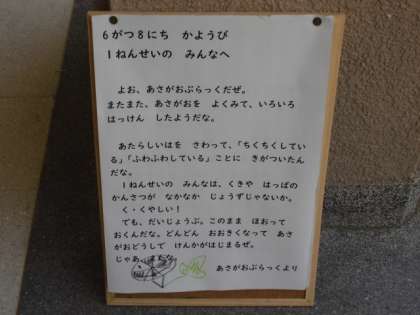 6がつ8にち　かようび
1ねんせいの　みんなへ
よお、あさがおぶらっくだぜ。
またまた、あさがおを　よくみて、いろいろ
はっけん　したようだな。
あたらしいはを　さわって、「ちくちくしてい
る」「ふわふわしている」ことに　きがついたん
だな。
1ねんせいの　みんなは、くきや　はっぱの
かんさつが　なかなか　じょうずじゃないか。
く・くやしい！
でも、だいじょうぶ。このまま　ほおって
おくんだな。どんどん　おおきくなって　あさ
がおどうしで　けんかがはじまるぜ。
じゃあ、またな。
あさがおぶらっくより